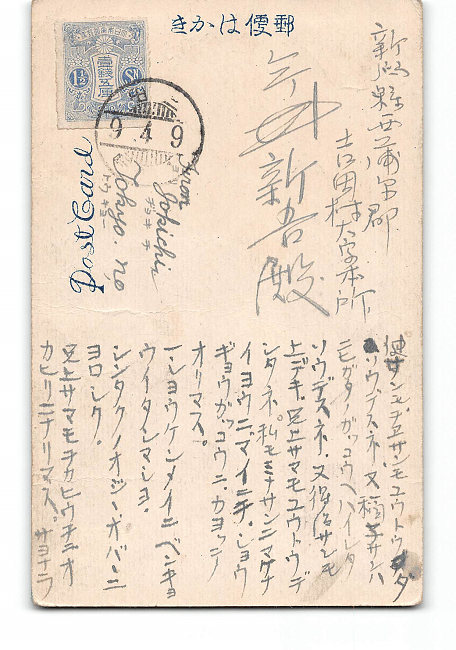 郵便はかき
壹銭五厘
1½ Sn
9 4 9
Post Card
From
Yokichi
ヨキチ
Tokyo. no,
トウキョー
新潟縣西蒲原郡
吉田村大字本所
新吾殿
サンモユウトウ
ソウデスネ 又 サンハ
ニヒガタノガッコウヘハイレタ
ソウデスネ、又 サンモ
上デキ、兄上サマモユウトウデ
シタネ。私モミナサンニマケナ
イヨウニマイニチ、ショウ
ギョウガッコウニ、カヨッテ
オリマス。
一ショウケンメイニベンキョ
ウイタシマショ、
シンタクノオジー、オバーニ
ヨロシク。
兄上サマモチカヒウチニオ
カヒリニナリマス。サヨナラ